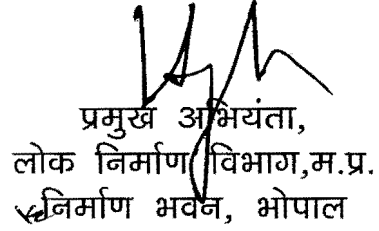 प्रमुख अभियंता,
लोक निर्माण विभाग,म.प्र.
निर्माण भवन, भोपाल